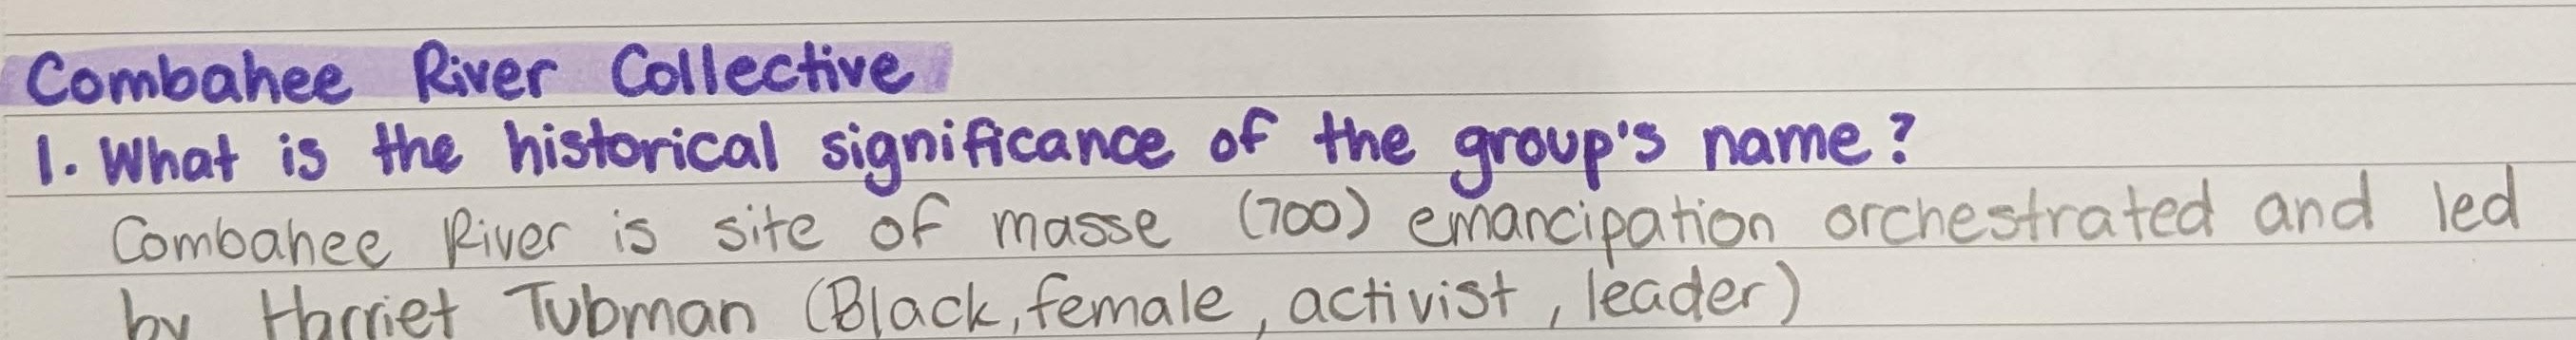 Combahee River Collective
1. What is the historical significance of the group's name?
Combahee River is site of masse (700) emancipation orchestrated and led
by Harriet Tubman (Black, female, activist, leader)